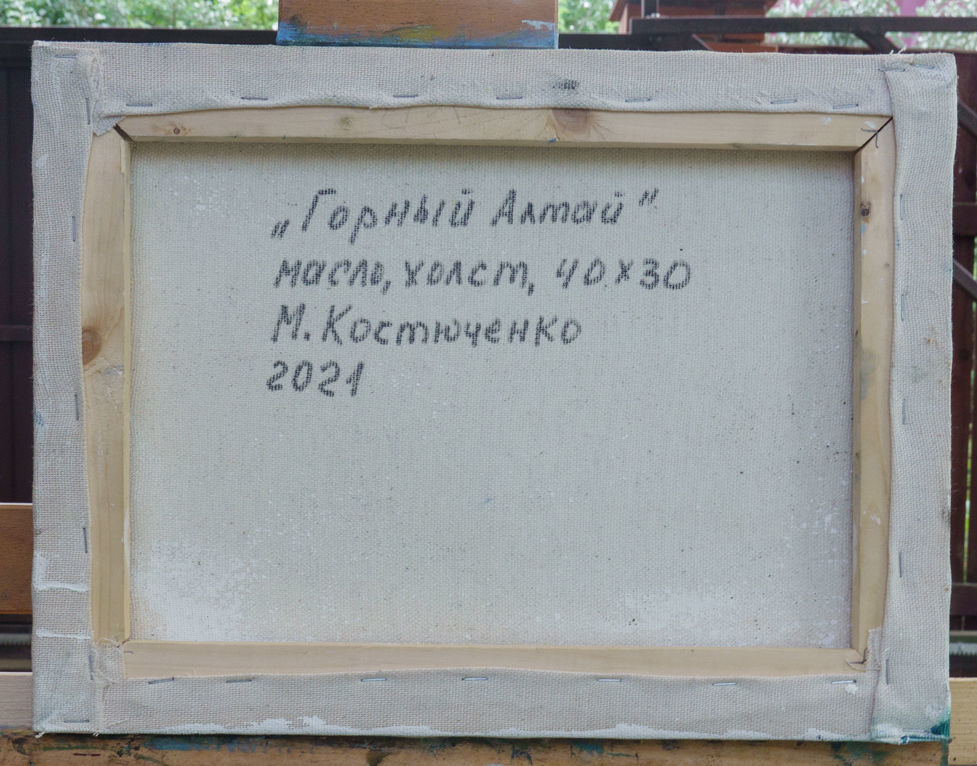 „Горный Алтай"
масло, холст, 40х30
М. Костюченко
2021